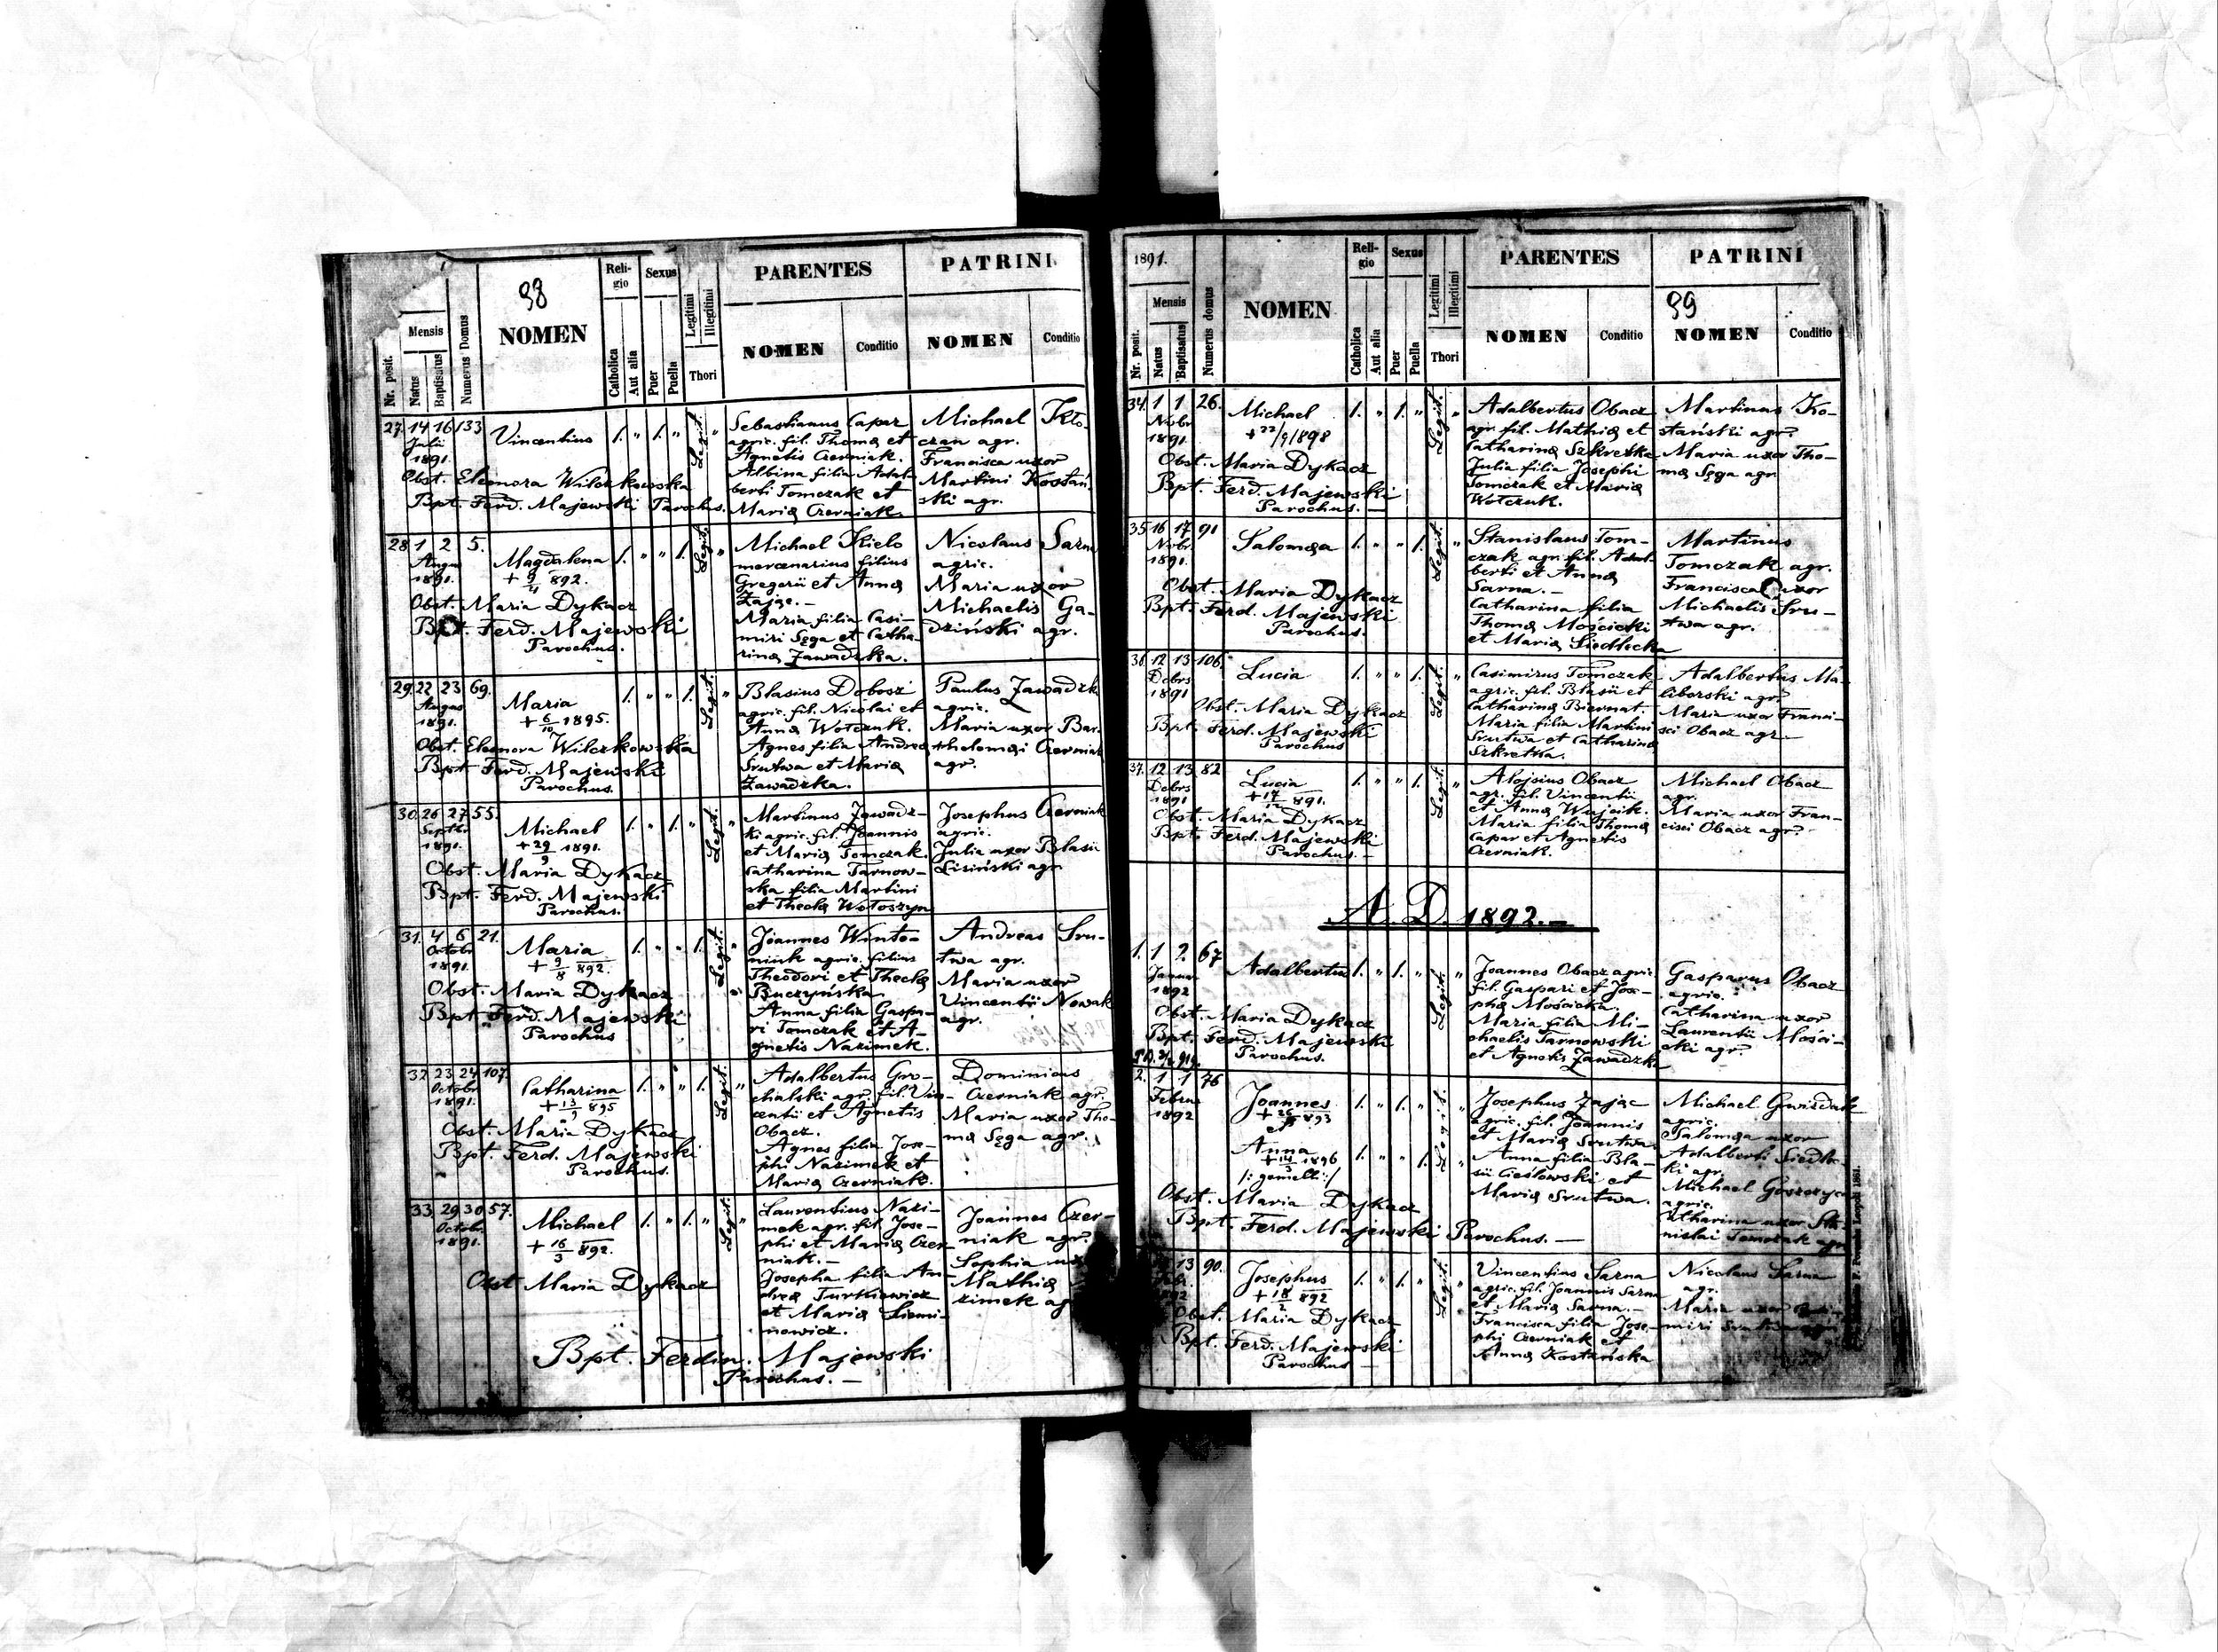 98
Nr. posit.
Mensis
Natus
Baptisatus
Numerus Domus
NOMEN
Religio
Catholica
Aut alia
Sexus
Puer
Puella
Legitimi
Illegitimi
Thori
PARENTES
NOMEN
Conditio
PATRINI
NOMEN
Conditio
27. 14 16 133
Julii
1891.
Vincentius
1. " 1. "
Legit. "
Obst. Eleonora Wilczkowska
Bpt. Ferd. Majewski Parochus.
Sebastianus Capar
agric. fil. Thomæ et
Agnetis Czerniak.
Albina filia Adal-
berti Tomczak et
Mariæ Czerniak.
Michael Kło-
czan agr.
Francisca uxor
Martini Kostań-
ski agr.
28 1 2 5.
Augus
1891.
Magdalena
+ 9/4 892.
1. " " 1.
Legit. "
Obst. Maria Dykacz
Bpt. Ferd. Majewski
Parochus.
Michael Kielo
mercenarius filius
Gregorii et Annæ
Zając. —
Maria filia Casi-
miri Sęga et Catha-
rinæ Zawadzka.
Nicolaus Sarna
agric.
Maria uxor
Michaelis Ga-
dziński agr.
29. 22 23 69.
Augus
1891.
Maria
+ 6/10 1895.
1. " " 1.
Legit. "
Obst. Eleonora Wilczkowska
Bpt. Ferd. Majewski
Parochus.
Blasius Dobosz
agric. fil. Nicolai et
Anna Wołczuk.
Agnes filia Andreæ
Srutwa et Mariæ
Zawadzka.
Paulus Zawadzk
agric.
Maria uxor Bar-
tholomæi Czerniak
agr.
30. 26 27 55.
Septbr
1891.
Michael
+ 29/9 1891.
1. " 1. "
Legit. "
Obst. Maria Dykacz
Bpt. Ferd. Majewski
Parochus.
Martinus Zawadz-
ki agric. fil. Joannis
et Mariæ Tomczak.
Catharina Tarnow-
ska filia Martini
et Theclæ Wołoszyn
Josephus Czerniak
agric.
Julia uxor Blasii
Lisiński agr.
31. 4 6 21.
Octobr
1891.
Maria
+ 9/8 892.
1. " " 1.
Legit. "
Obst. Maria Dykacz
Bpt. Ferd. Majewski
Parochus
Joannes Winto-
niuk agric. filius
Theodori et Theclæ
Buczyńska.
Anna filia Gaspa-
ri Tomczak et A-
gnetis Nazimek.
Andreas Sru-
twa agr.
Maria uxor
Vincentii Nowak
agr.
32. 23 24 107.
Octobr
1891.
Catharina
895
1. " " 1.
Legit. "
Obst. Maria Dykacz
Bpt. Ferd. Majewski
Parochus.
Adalbertus Gro-
chalski agr. fil. Vin-
centii et Agnetis
Obacz.
Agnes filia Jose-
phi Nazimek et
Mariæ Czerniak.
Dominicus
Czerniak agr.
Maria uxor Tho-
mæ Sęga agr.
33. 29 30 57.
Octobr.
1891.
Michael
+ 16/3 892.
1. " 1. "
Legit. "
Obst Maria Dykacz
Laurentius Nazi-
mek agr. fil. Jose-
phi et Mariæ Czer-
niak. —
Josepha filia An-
dreæ Turkiewicz
et Mariæ Siemi-
nowicz.
Joannes Czer-
niak agr.
Sophia
Mathiæ
zimek
Bpt. Ferdin. Majewski
Parochus. —
1891.
99
Nr. posit.
Mensis
Natus
Baptisatus
Numerus domus
NOMEN
Religio
Catholica
Aut alia
Sexus
Puer
Puella
Legitimi
Illegitimi
Thori
PARENTES
NOMEN
Conditio
PATRINI
NOMEN
Conditio
34. 1 1 26.
Nobr
1891.
Michael
+ 22/9/898
1. " 1. "
Legit. "
Obst. Maria Dykacz
Bpt. Ferd. Majewski
Parochus. —
Adalbertus Obacz
agr. fil. Mathiæ et
Catharinæ Szkretka
Julia filia Josephi
Tomczak et Mariæ
Wołczuk.
Martinus Ko-
stański agr.
Maria uxor Tho-
mæ Sęga agr.
35. 16 17 91
Nobr.
1891.
Salomæa
1. " " 1.
Legit. "
Obst. Maria Dykacz
Bpt. Ferd. Majewski
Parochus.
Stanislaus Tom-
czak agr. fil. Adal-
berti et Annæ
Sarna. —
Catharina filia
Thomæ Mościcki
et Mariæ Siedlecka
Martinus
Tomczak agr.
Francisca uxor
Michaelis Sru-
twa agr.
36. 12 13 106.
Debrs
1891
Lucia
1. " " 1.
Legit. "
Obst. Maria Dykacz
Bpt. Ferd. Majewski
Parochus
Casimirus Tomczak
agric. fil. Blasii et
Catharinæ Biernat.
Maria filia Martini
Srutwa et Catharinæ
Szkretka.
Adalbertus Ma-
liborski agr.
Maria uxor Franci-
sci Obacz agr.
37. 12 13 82
Debrs
1891
Lucia
+ 17/12 891.
1. " " 1.
Legit. "
Obst. Maria Dykacz
Bpt. Ferd. Majewski
Parochus. —
Alojsius Obacz
agr. fil. Vincentii
et Annæ Wujcik.
Maria filia Thomæ
Capar et Agnetis
Czerniak.
Michael Obacz
agr.
Maria uxor Fran-
cisci Obacz agr.
A. D. 1892. —
1. 1 2. 67
Januar
1892
Adalbertus
1. " 1. "
Legit. "
Obst. Maria Dykacz
Bpt. Ferd. Majewski
Parochus.
Joannes Obacz agric.
fil. Gaspari et Jose-
phæ Mościcka
Maria filia Mi-
chaelis Tarnowski
et Agnetis Zawadzka
Gasparus Obacz
agric.
Catharina uxor
Laurentii Mości-
cki agr.
2. 1 1 76
Februa
1892
Joannes
893
et
Anna
1896
/: gemelli :/
1. " 1. "
1. " " 1.
Legit. "
Legit. "
Obst. Maria Dykacz
Bpt. Ferd. Majewski Parochus. —
Josephus Zając
agric. fil. Joannis
et Mariæ Srutwa.
Anna filia Bla-
sii Cieślowski et
Mariæ Srutwa.
Michael Gwiżdak
agric.
Salomæa uxor
Adalberti Siedle-
ki agr.
Michael
agric.
Catharina uxor Sta-
nislai Tomczak agr
13 90.
Josephus
+ 18/2 892
1. " 1. "
Legit. "
Obst. Maria Dykacz
Bpt. Ferd. Majewski
Parochus —
Vincentius Sarna
agric. fil. Joannis Sarna
et Mariæ Sarna. —
Francisca filia Jose-
phi Czerniak et
Annæ Kostańska
Nicolaus Sarna
agr.
Maria uxor
miri Srutwa